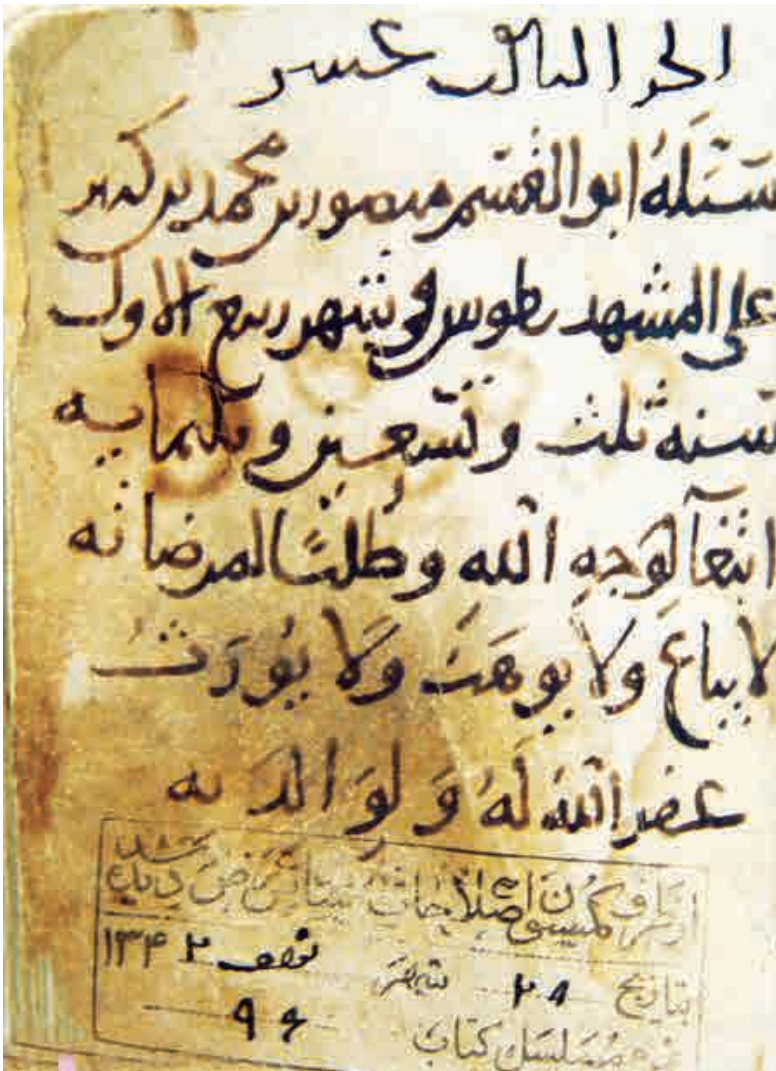 الجز الثالث عشر
سَبَّلَهُ ابو القسم منصور بن محمد بن كثير
على المشهد بطوس في شهر ربيع الاول
سنه ثلث وتسعين وثلثمايه
ابتغآ لوجهِ الله وطلبًا لمرضاته
لا يباع ولا يوهَبُ وَلا يُورَثُ
غفر الله لَهُ وَلِوَالديه
از طرف كميسون اصلاحات
بتاريخ ٢٨ شهر ١٣٤٢
مسلسل كتاب ٩٤